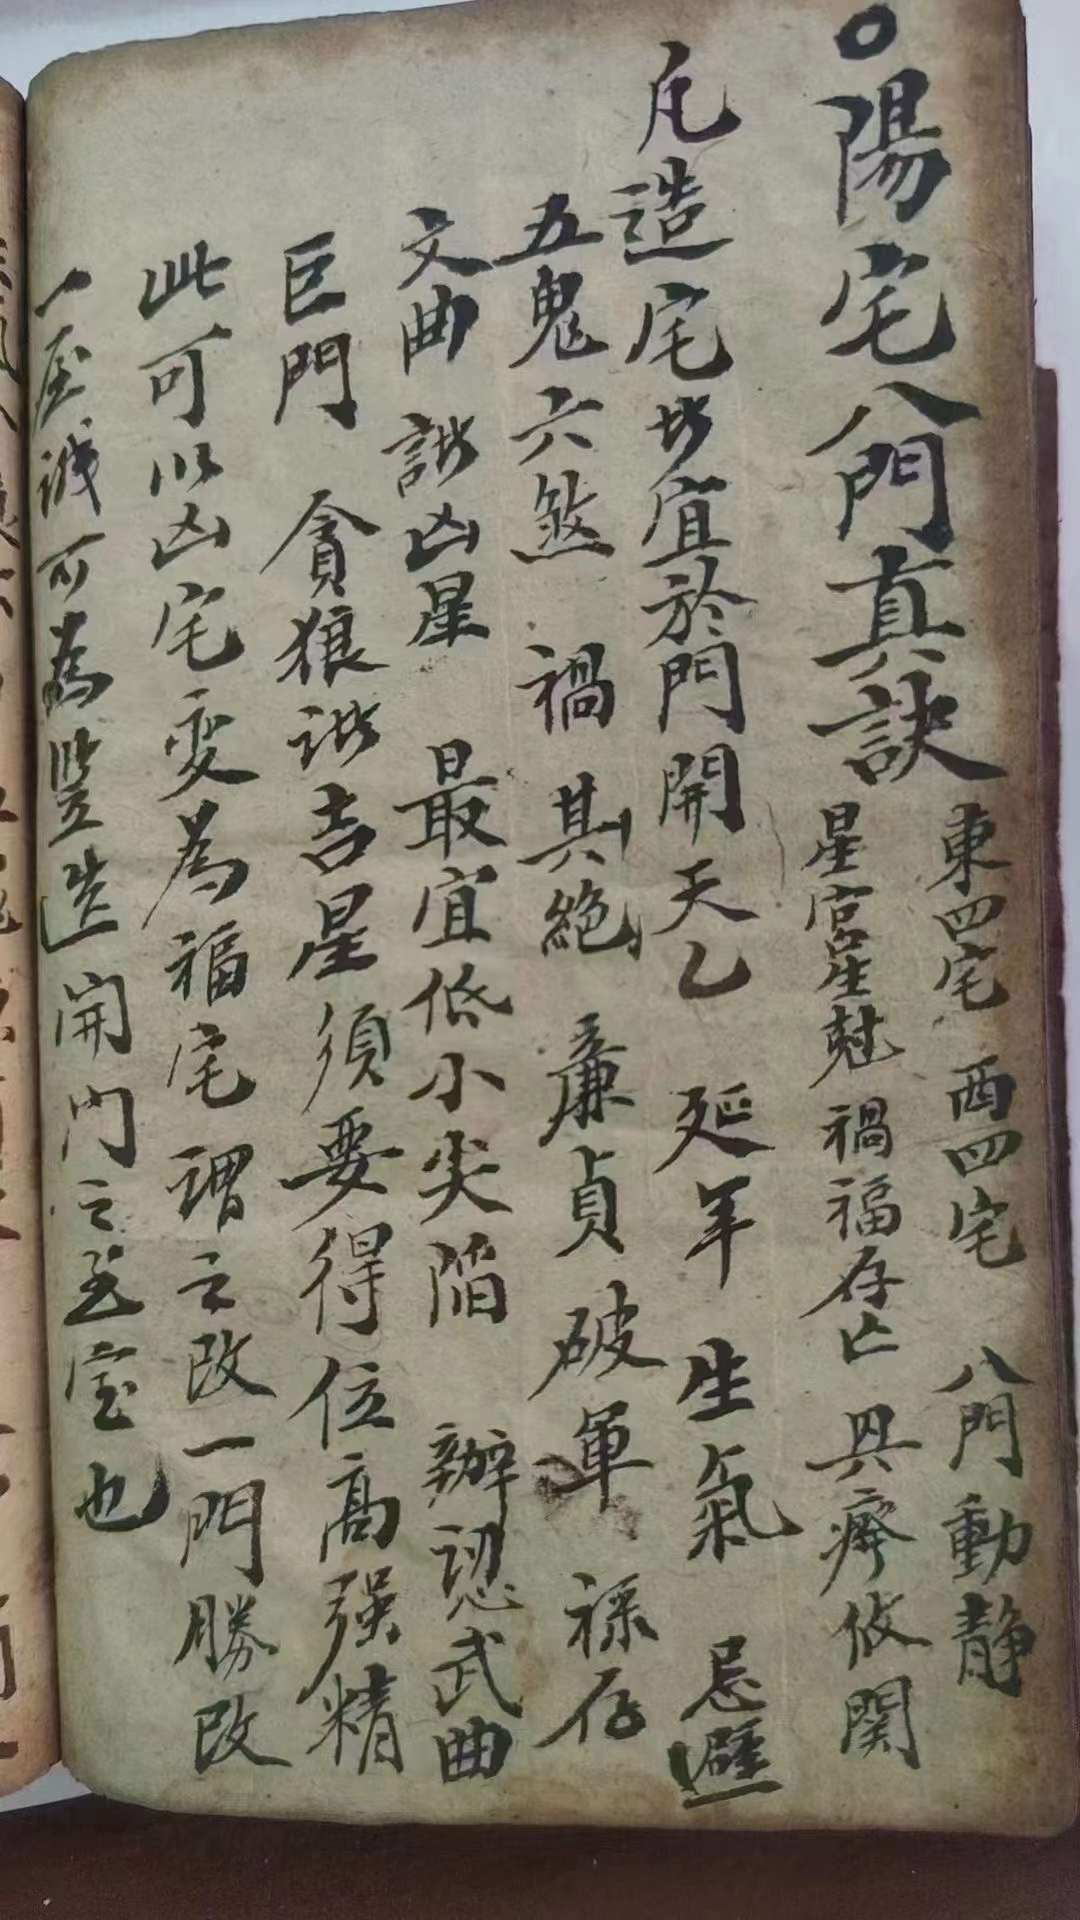 陽宅八門真訣
東四宅 西四宅 八門動静
星宮星尅 禍福存亡 具疼攸関
凡造宅皆宜於門開天乙 延年 生氣 忌避
五鬼六煞 禍 其絶 廉貞 破軍 祿存
文曲 諧凶星 最宜低小尖陷 辦認武曲
巨門 貪狼諧吉星須要得位高强精
此可以凶宅变為福宅 謂之改一門勝改
一屋誠可為豎造開門之至宝也